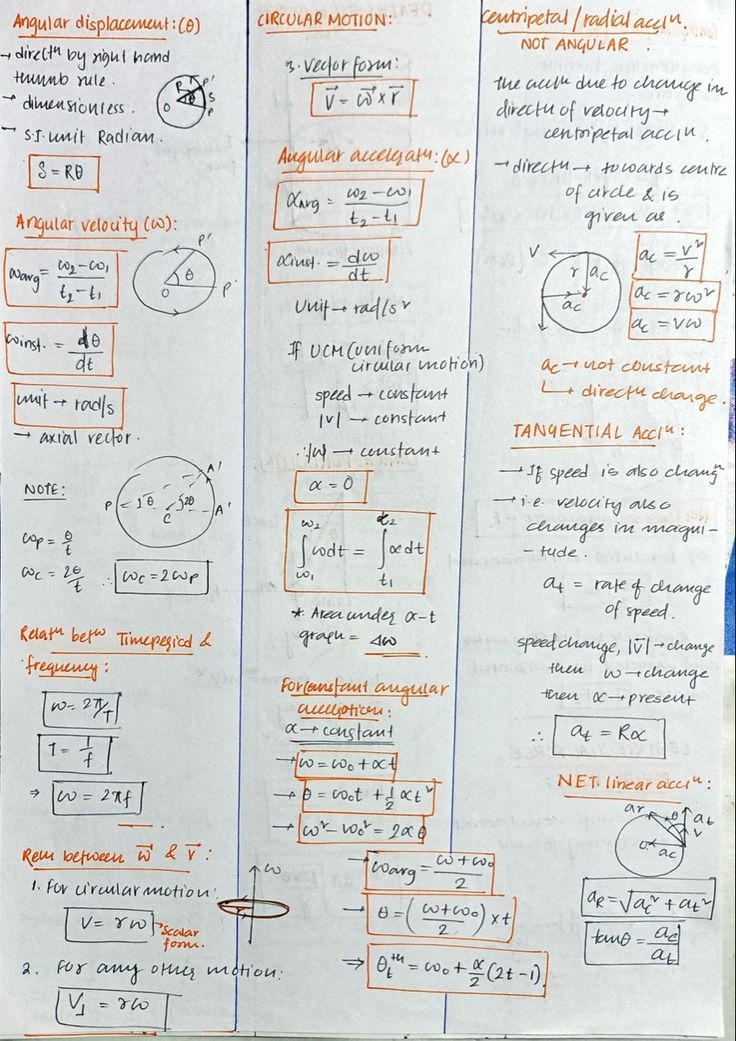 Angular displacement: (θ)
→ directⁿ by right hand
thumb rule.
→ dimensionless.
→ S.I. unit Radian.
R P' O θ S P
S = Rθ
Angular velocity (ω):
ωavg = ω2 - ω1 / t2 - t1
P' θ O P
ωinst. = dθ / dt
unit → rad/s
→ axial vector.
NOTE:
P θ C 2θ A' A'
ωP = θ/t
ωC = 2θ/t ∴ ωC = 2ωP
Relatⁿ betⁿ Timeperiod &
frequency:
ω = 2π/T
T = 1/f
⇒ ω = 2πf
Relⁿ between ω⃗ & v⃗ :
1. For circular motion:
V = rω → Scalar form.
2. For any other motion:
V⊥ = rω
CIRCULAR MOTION:
3. Vector form:
V⃗ = ω⃗ × r⃗
Angular acceleratⁿ: (α)
αavg = ω2 - ω1 / t2 - t1
αinst. = dω / dt
Unit → rad/s²
If UCM (uniform
circular motion)
speed → constant
|v| → constant
∴ |ω| → constant
α = 0
∫ω1^ω2 ωdt = ∫t1^t2 αdt
* Area under α-t
graph = Δω
For constant angular
acceleration:
α → constant
→ ω = ω0 + αt
→ θ = ω0t + 1/2 αt²
→ ω² - ω0² = 2αθ
→ ωavg = ω + ω0 / 2
ω
→ θ = (ω + ω0 / 2) × t
⇒ θt^th = ω0 + α/2 (2t - 1)
Centripetal / radial acclⁿ
NOT ANGULAR.
the acclⁿ due to change in
directⁿ of velocity →
centripetal acclⁿ.
→ directⁿ → towards centre
of circle & is
given as.
V r ac ac
ac = v²/r
ac = rω²
ac = vω
ac → not constant
↳ directⁿ change.
TANGENTIAL Acclⁿ:
→ If speed is also changⁿ
→ i.e. velocity also
changes in magni-
-tude.
at = rate of change
of speed.
speed change, |v⃗| → change
then ω → change
then α → present
∴ at = Rα
NET linear acclⁿ:
ar θ at V O ac
aR = √ac² + at²
tanθ = ac / at